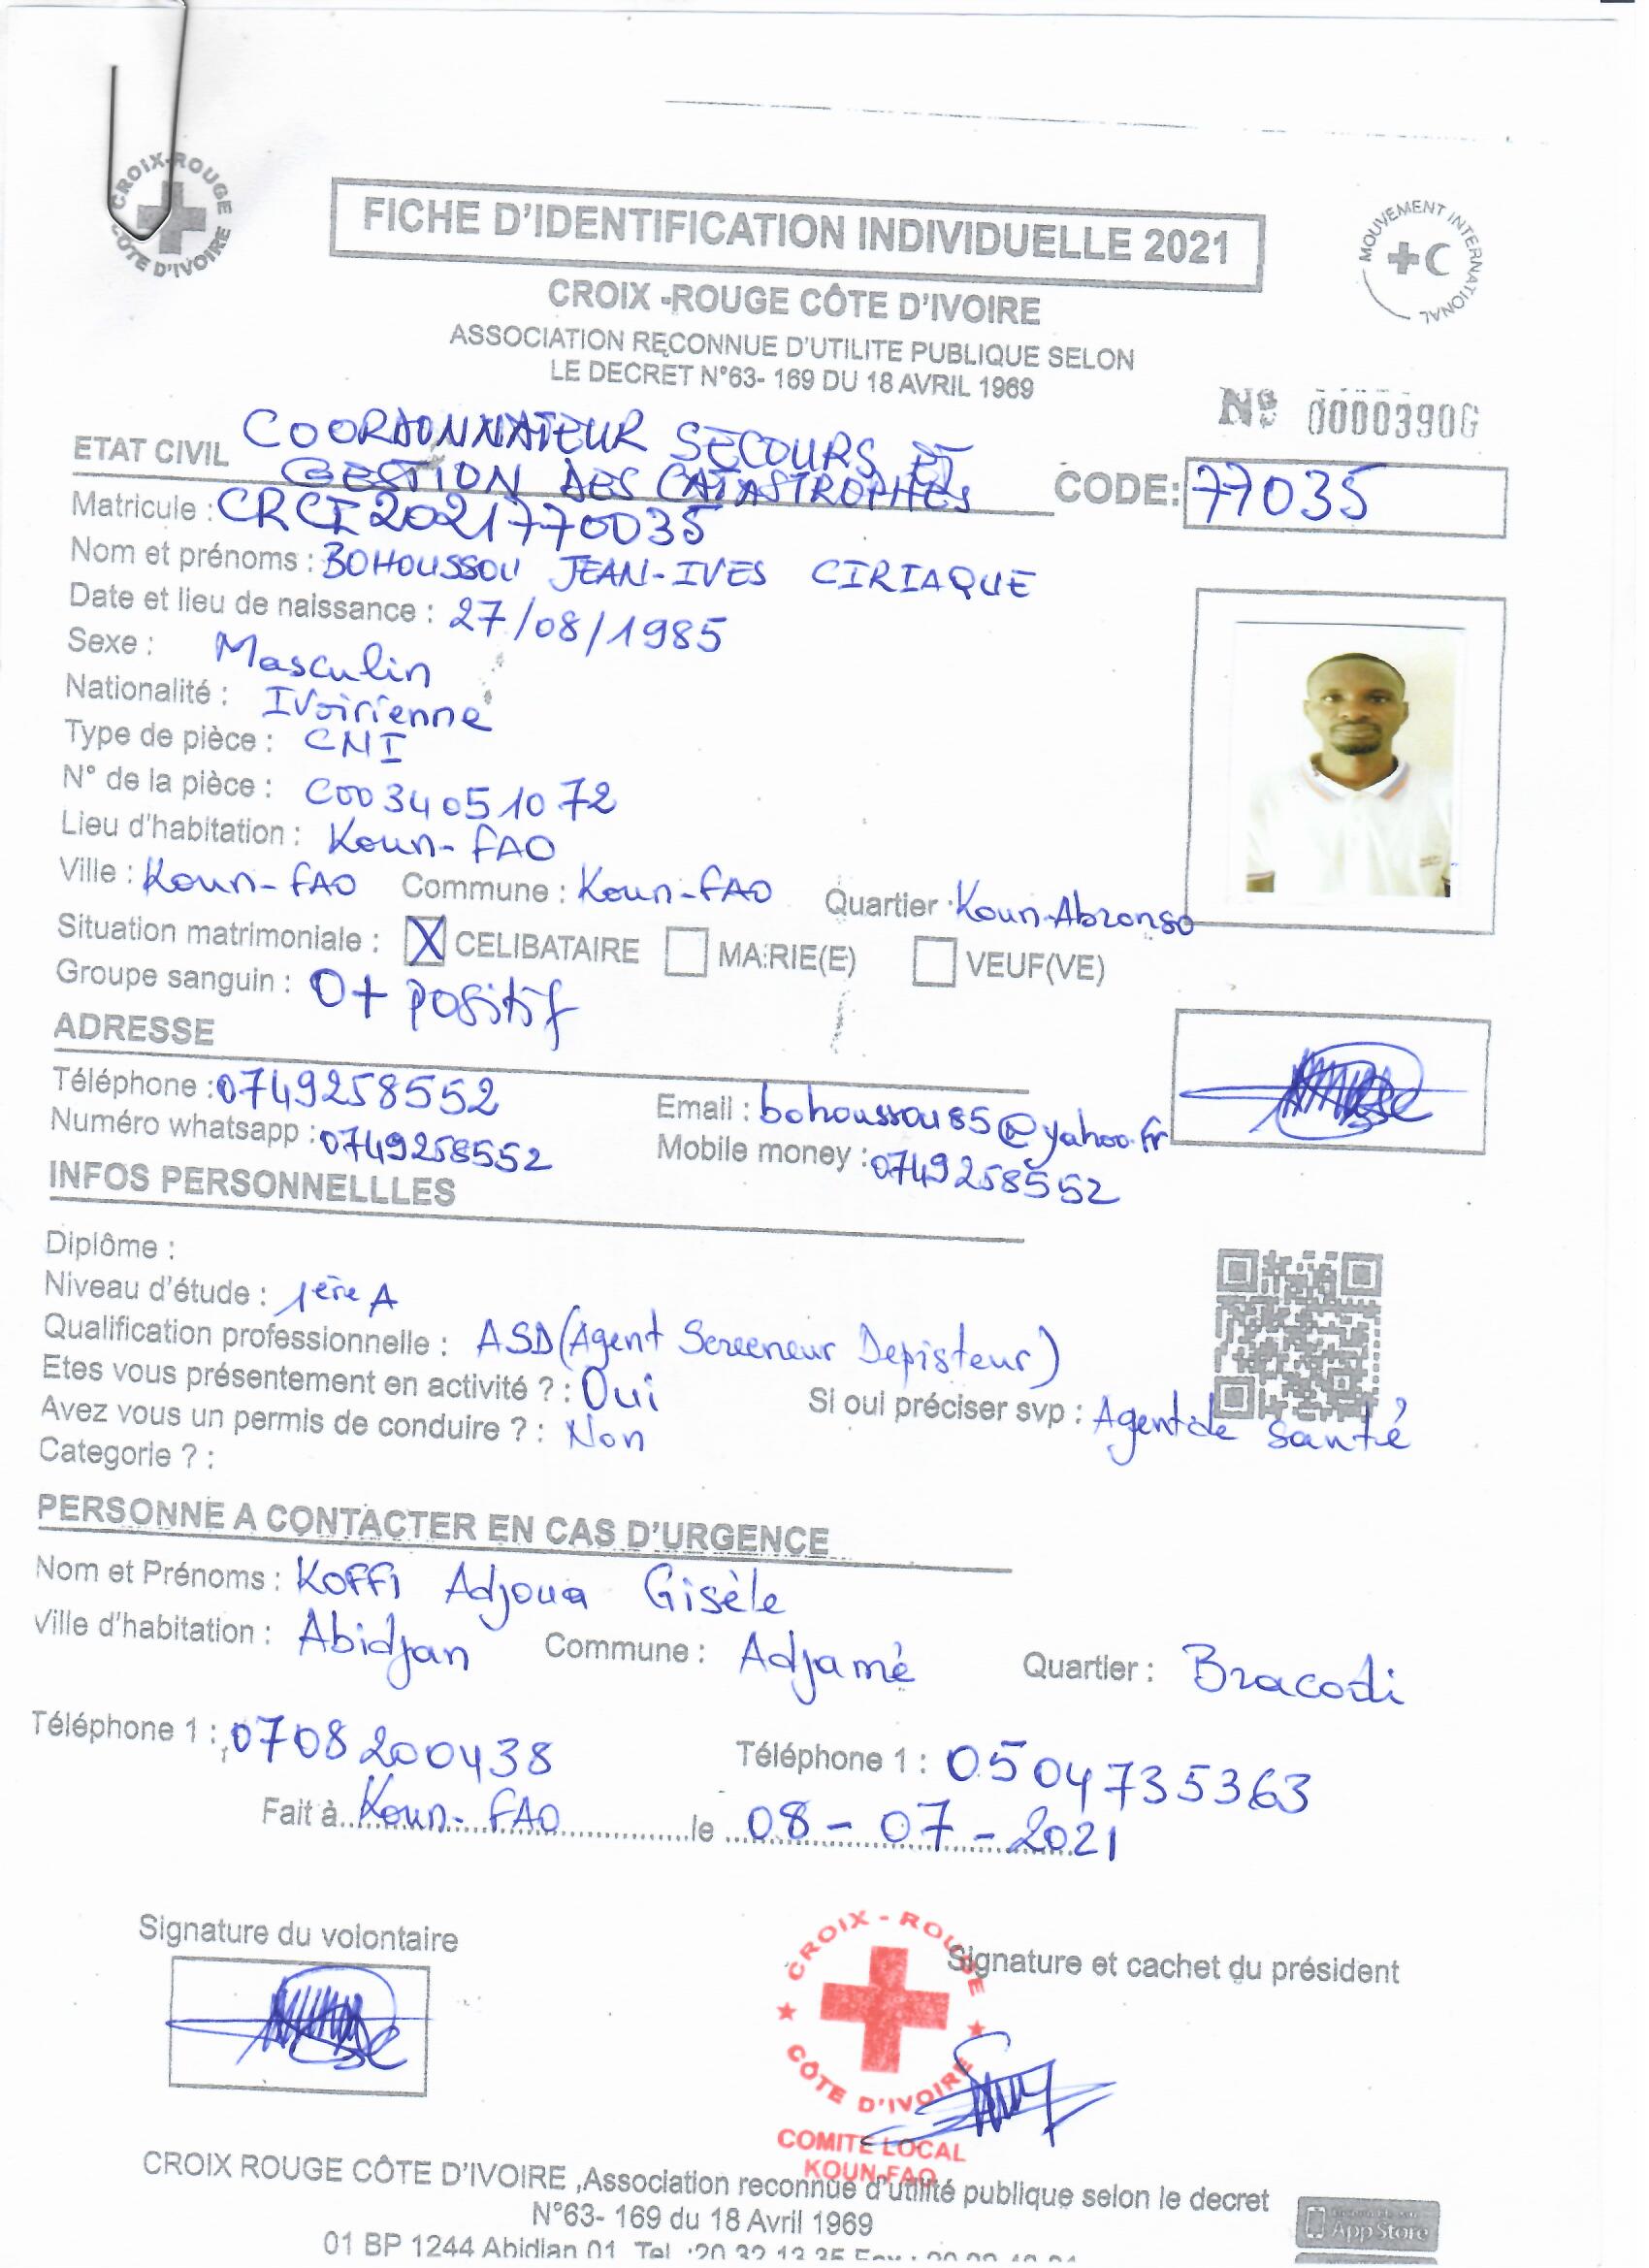 CROIX-ROUGE
CÔTE D'IVOIRE
FICHE D'IDENTIFICATION INDIVIDUELLE 2021
MOUVEMENT INTERNATIONAL
CROIX -ROUGE CÔTE D'IVOIRE
ASSOCIATION RECONNUE D'UTILITE PUBLIQUE SELON
LE DECRET N°63- 169 DU 18 AVRIL 1969
COORDONNATEUR SECOURS ET
GESTION DES CATASTROPHES
ETAT CIVIL
CODE: 77035
Matricule : CRCI2021770035
Nom et prénoms : BOHOUSSOU JEAN-IVES CIRIAQUE
Date et lieu de naissance : 27/08/1985
Sexe : Masculin
Nationalité : IVoirienne
Type de pièce : CNI
N° de la pièce : C0034051072
Lieu d'habitation : Koun-FAO
Ville : Koun-FAO Commune : Koun-FAO Quartier : Koun-Abronso
Situation matrimoniale : X CELIBATAIRE MARIE(E) VEUF(VE)
Groupe sanguin : O+ positif
ADRESSE
Téléphone : 0749258552 Email : bohoussou85@yahoo.fr
Numéro whatsapp : 0749258552 Mobile money : 0749258552
INFOS PERSONNELLLES
Diplôme :
Niveau d'étude : 1ère A
Qualification professionnelle : ASD (Agent Screeneur Depisteur)
Etes vous présentement en activité ? : Oui Si oui préciser svp : Agent de santé
Avez vous un permis de conduire ? : Non
Categorie ? :
PERSONNE A CONTACTER EN CAS D'URGENCE
Nom et Prénoms : Koffi Adjoua Gisèle
Ville d'habitation : Abidjan Commune : Adjamé Quartier : Bracodi
Téléphone 1 : 0708200438 Téléphone 1 : 0504735363
Fait à Koun-FAO le 08-07-2021
Signature du volontaire
Signature et cachet du président
CROIX-ROUGE
CÔTE D'IVOIRE
COMITE LOCAL
KOUN-FAO
CROIX ROUGE CÔTE D'IVOIRE ,Association reconnue d'utilité publique selon le decret
N°63- 169 du 18 Avril 1969
01 BP 1244 Abidjan 01 Tel :20 32 13 35
App Store